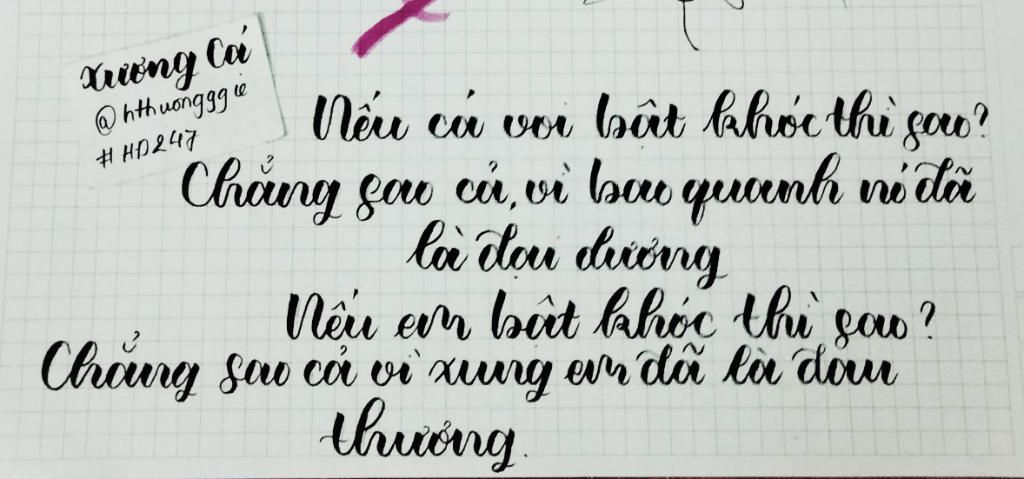 Xương Cá
@hthuongggie
#HD247
Nếu cá voi bật khóc thì sao?
Chẳng sao cả, vì bao quanh nó đã
là đại dương
Nếu em bật khóc thì sao?
Chẳng sao cả vì xung em đã là đau
thương.